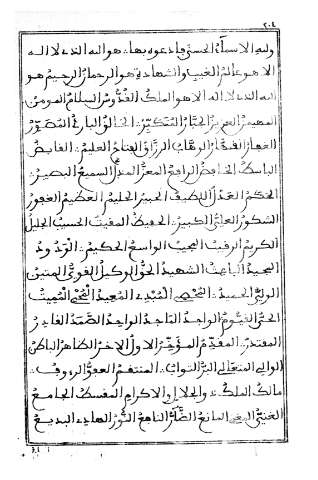 ٢٠٤
ولله الاسماء الحسنى فادعوه بها هو الله الذي لا اله
الا هو عالم الغيب والشهادة هو الرحمان الرحيم هو
الله الذي لا اله الا هو الملك القدوس السلام المومن
المهيمن العزيز الجبار المتكبر الخالق البارئ المصور
الغفار القهار الوهاب الرزاق الفتاح العليم القابض
الباسط الخافض الرافع المعز المذل السميع البصير
الحكم العدل اللطيف الخبير الحليم العظيم الغفور
الشكور العلي الكبير الحفيظ المقيت الحسيب الجليل
الكريم الرقيب المجيب الواسع الحكيم الودود
المجيد الباعث الشهيد الحق الوكيل القوي المتين
الولي الحميد المحصي المبدئ المعيد المحيي المميت
الحي القيوم الواجد الماجد الواحد الصمد القادر
المقتدر المقدم المؤخر الاول الاخر الظاهر الباطن
الوالي المتعالي البر التواب المنتقم العفو الرءوف
مالك الملك ذو الجلال والاكرام المقسط الجامع
الغني المغني المانع الضار النافع النور الهادي البديع